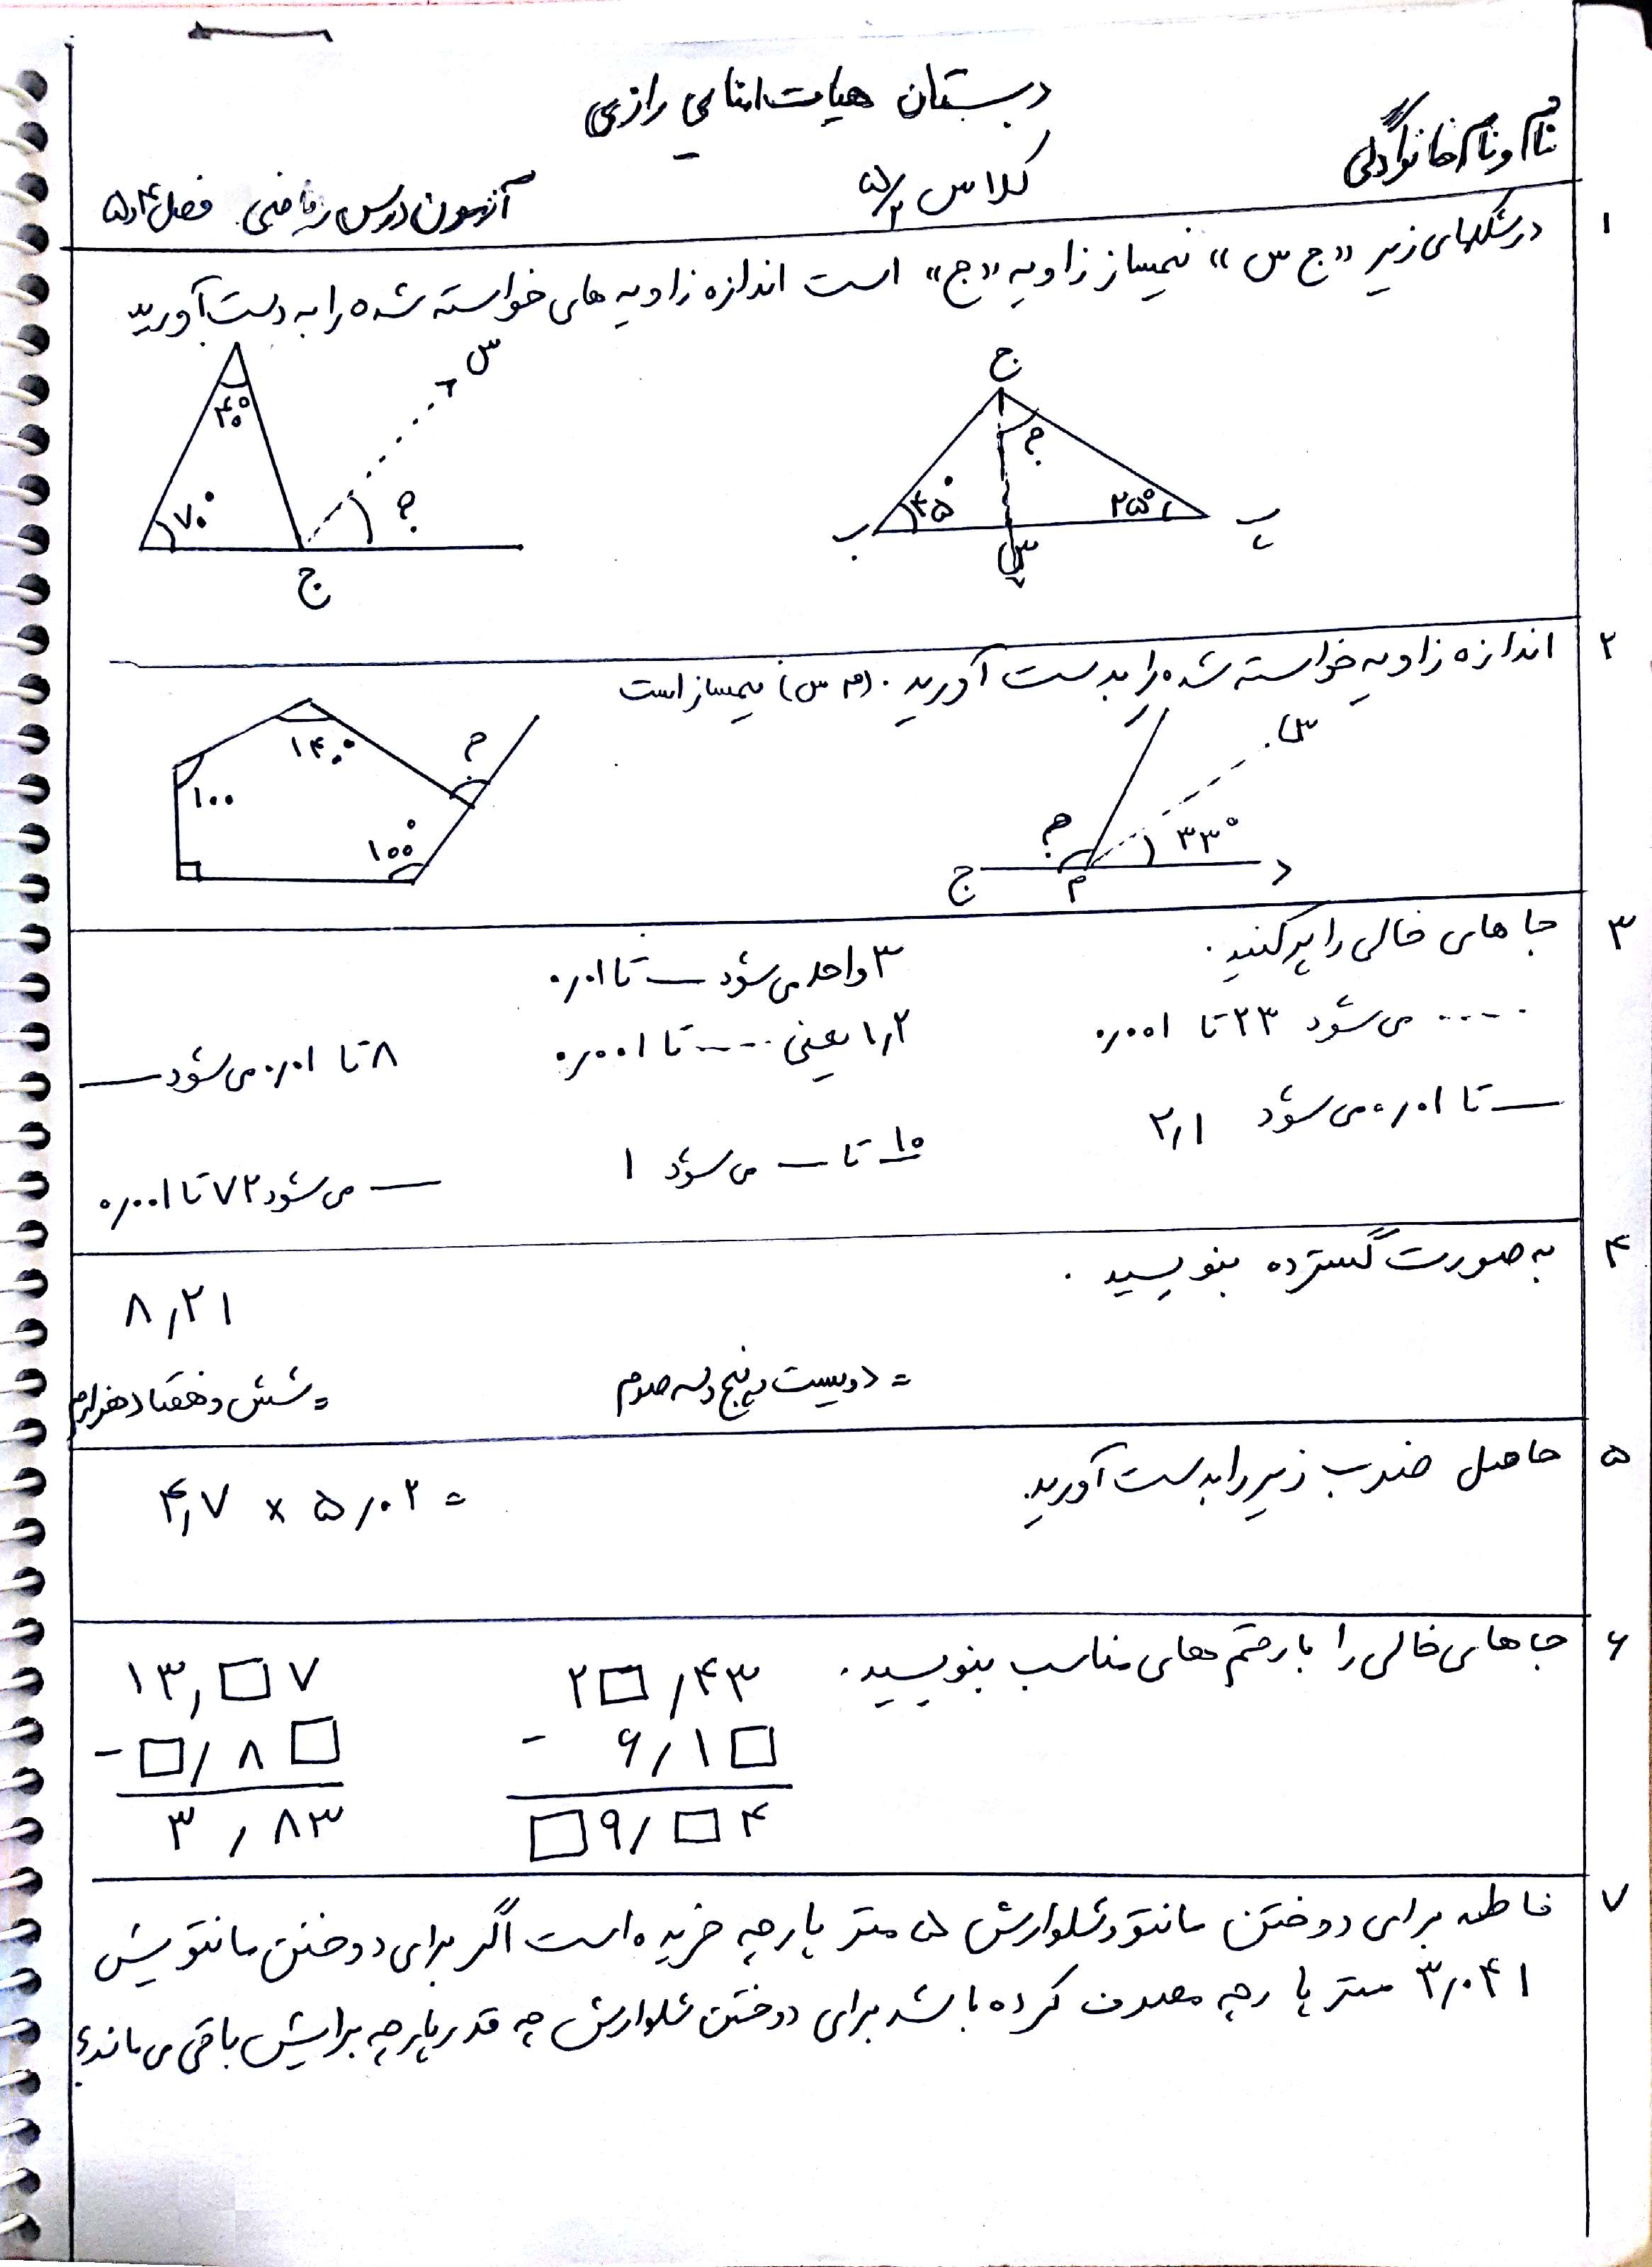 دبستان هیات امنایی رازی
نام و نام خانوادگی
کلاس ۵/۲
آزمون درس ریاضی فصل ۴و۵
۱
در شکلهای زیر «ج س» نیمساز زاویه «ج» است اندازه زاویه های خواسته شده را به دست آورید
ج
؟
۴۵°
۲۵°
ب
پ
س
س
۴۰°
۷۰°
؟
ج
۲
اندازه زاویه خواسته شده را بدست آورید. (م س) نیمساز است
س
؟
۳۳°
ج
م
د
۱۴۰°
؟
۱۰۰
۱۰۰°
۳
جاهای خالی را پر کنید.
۳ واحد می شود — تا ۰٫۰۱
..... می شود ۲۳ تا ۰٫۰۰۱
۱٫۲ یعنی ..... تا ۰٫۰۰۱
۸ تا ۰٫۰۱ می شود —
— تا ۰٫۰۱ می شود ۲٫۱
۱۰ تا — می شود ۱
— می شود ۷۲ تا ۰٫۰۰۱
۴
به صورت گسترده بنویسید.
۸٫۲۱
= دویست و پنج و سه صدم
= شش و هفتاد هزارم
۵
حاصل ضرب زیر را بدست آورید.
۴٫۷ × ۵٫۰۲ =
۶
جاهای خالی را با رقم های مناسب بنویسید.
۲□٫۴۳
- ۶٫۱□
□۹٫□۴
۱۳٫□۷
- □٫۸□
۳٫۸۳
۷
فاطمه برای دوختن مانتو و شلوارش ۵ متر پارچه خریده است اگر برای دوختن مانتویش
۳٫۰۴۱ متر پارچه مصرف کرده باشد برای دوختن شلوارش چه قدر پارچه برایش باقی می ماند؟